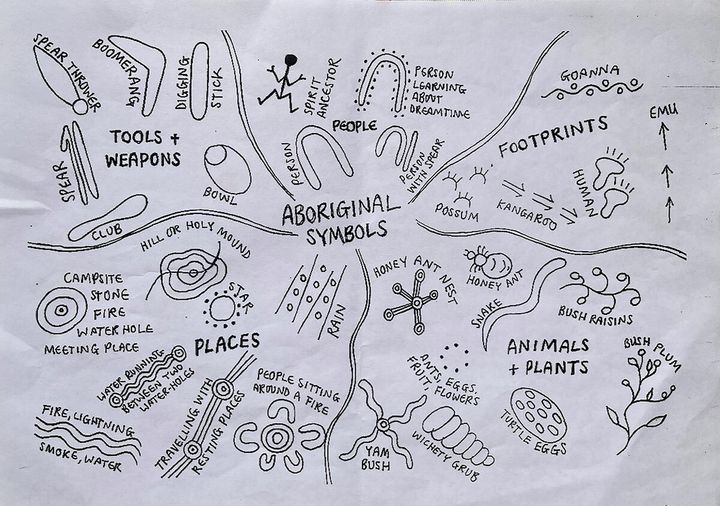 ABORIGINAL
SYMBOLS
TOOLS +
WEAPONS
SPEAR THROWER
BOOMERANG
DIGGING
STICK
SPEAR
BOWL
CLUB
PEOPLE
SPIRIT
ANCESTOR
PERSON
LEARNING
ABOUT
DREAMTIME
PERSON
PERSON
WITH SPEAR
FOOTPRINTS
GOANNA
EMU
POSSUM
KANGAROO
HUMAN
PLACES
HILL OR HOLY MOUND
CAMPSITE
STONE
FIRE
WATER HOLE
MEETING PLACE
STAR
RAIN
WATER RUNNING
BETWEEN TWO
WATER-HOLES
FIRE, LIGHTNING
SMOKE, WATER
TRAVELLING WITH
RESTING PLACES
PEOPLE SITTING
AROUND A FIRE
ANIMALS
+ PLANTS
HONEY ANT NEST
HONEY ANT
SNAKE
BUSH RAISINS
BUSH PLUM
ANTS, EGGS,
FRUIT, FLOWERS
TURTLE EGGS
YAM
BUSH
WICHETY GRUB